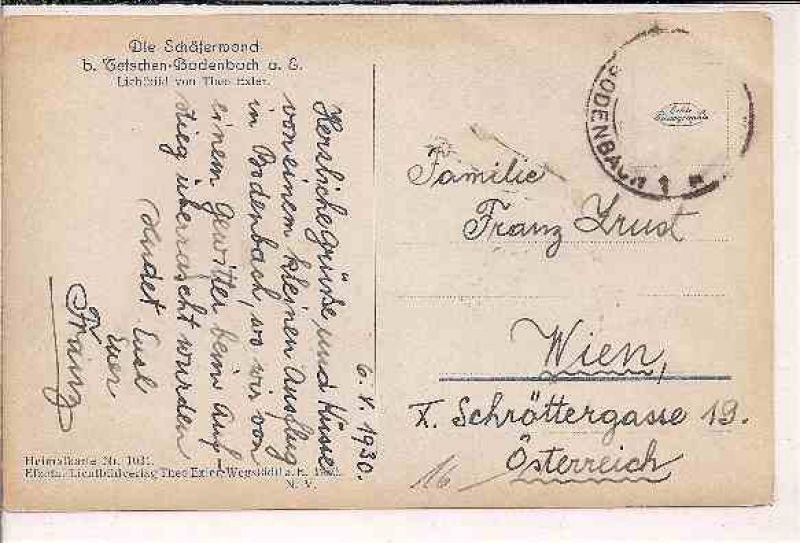 Die Schäferwand
b. Tetschen-Bodenbach a. E.
Lichtbild von Theo Exler.
6. V. 1930.
Herzliche Grüße und Küsse
von einem kleinen Ausflug
in Bodenbach, wo wir von
einem Gewitter beim Auf-
stieg überrascht wurden
sendet Euch
Euer
Franz
Heimatkarte Nr. 1031.
Lichtbildverlag Theo Exler-Wegstädtl a. E.
N. V.
BODENBACH 1
Echte
Photographie
Familie
Franz Zrust
Wien,
X. Schröttergasse 19.
Österreich
16